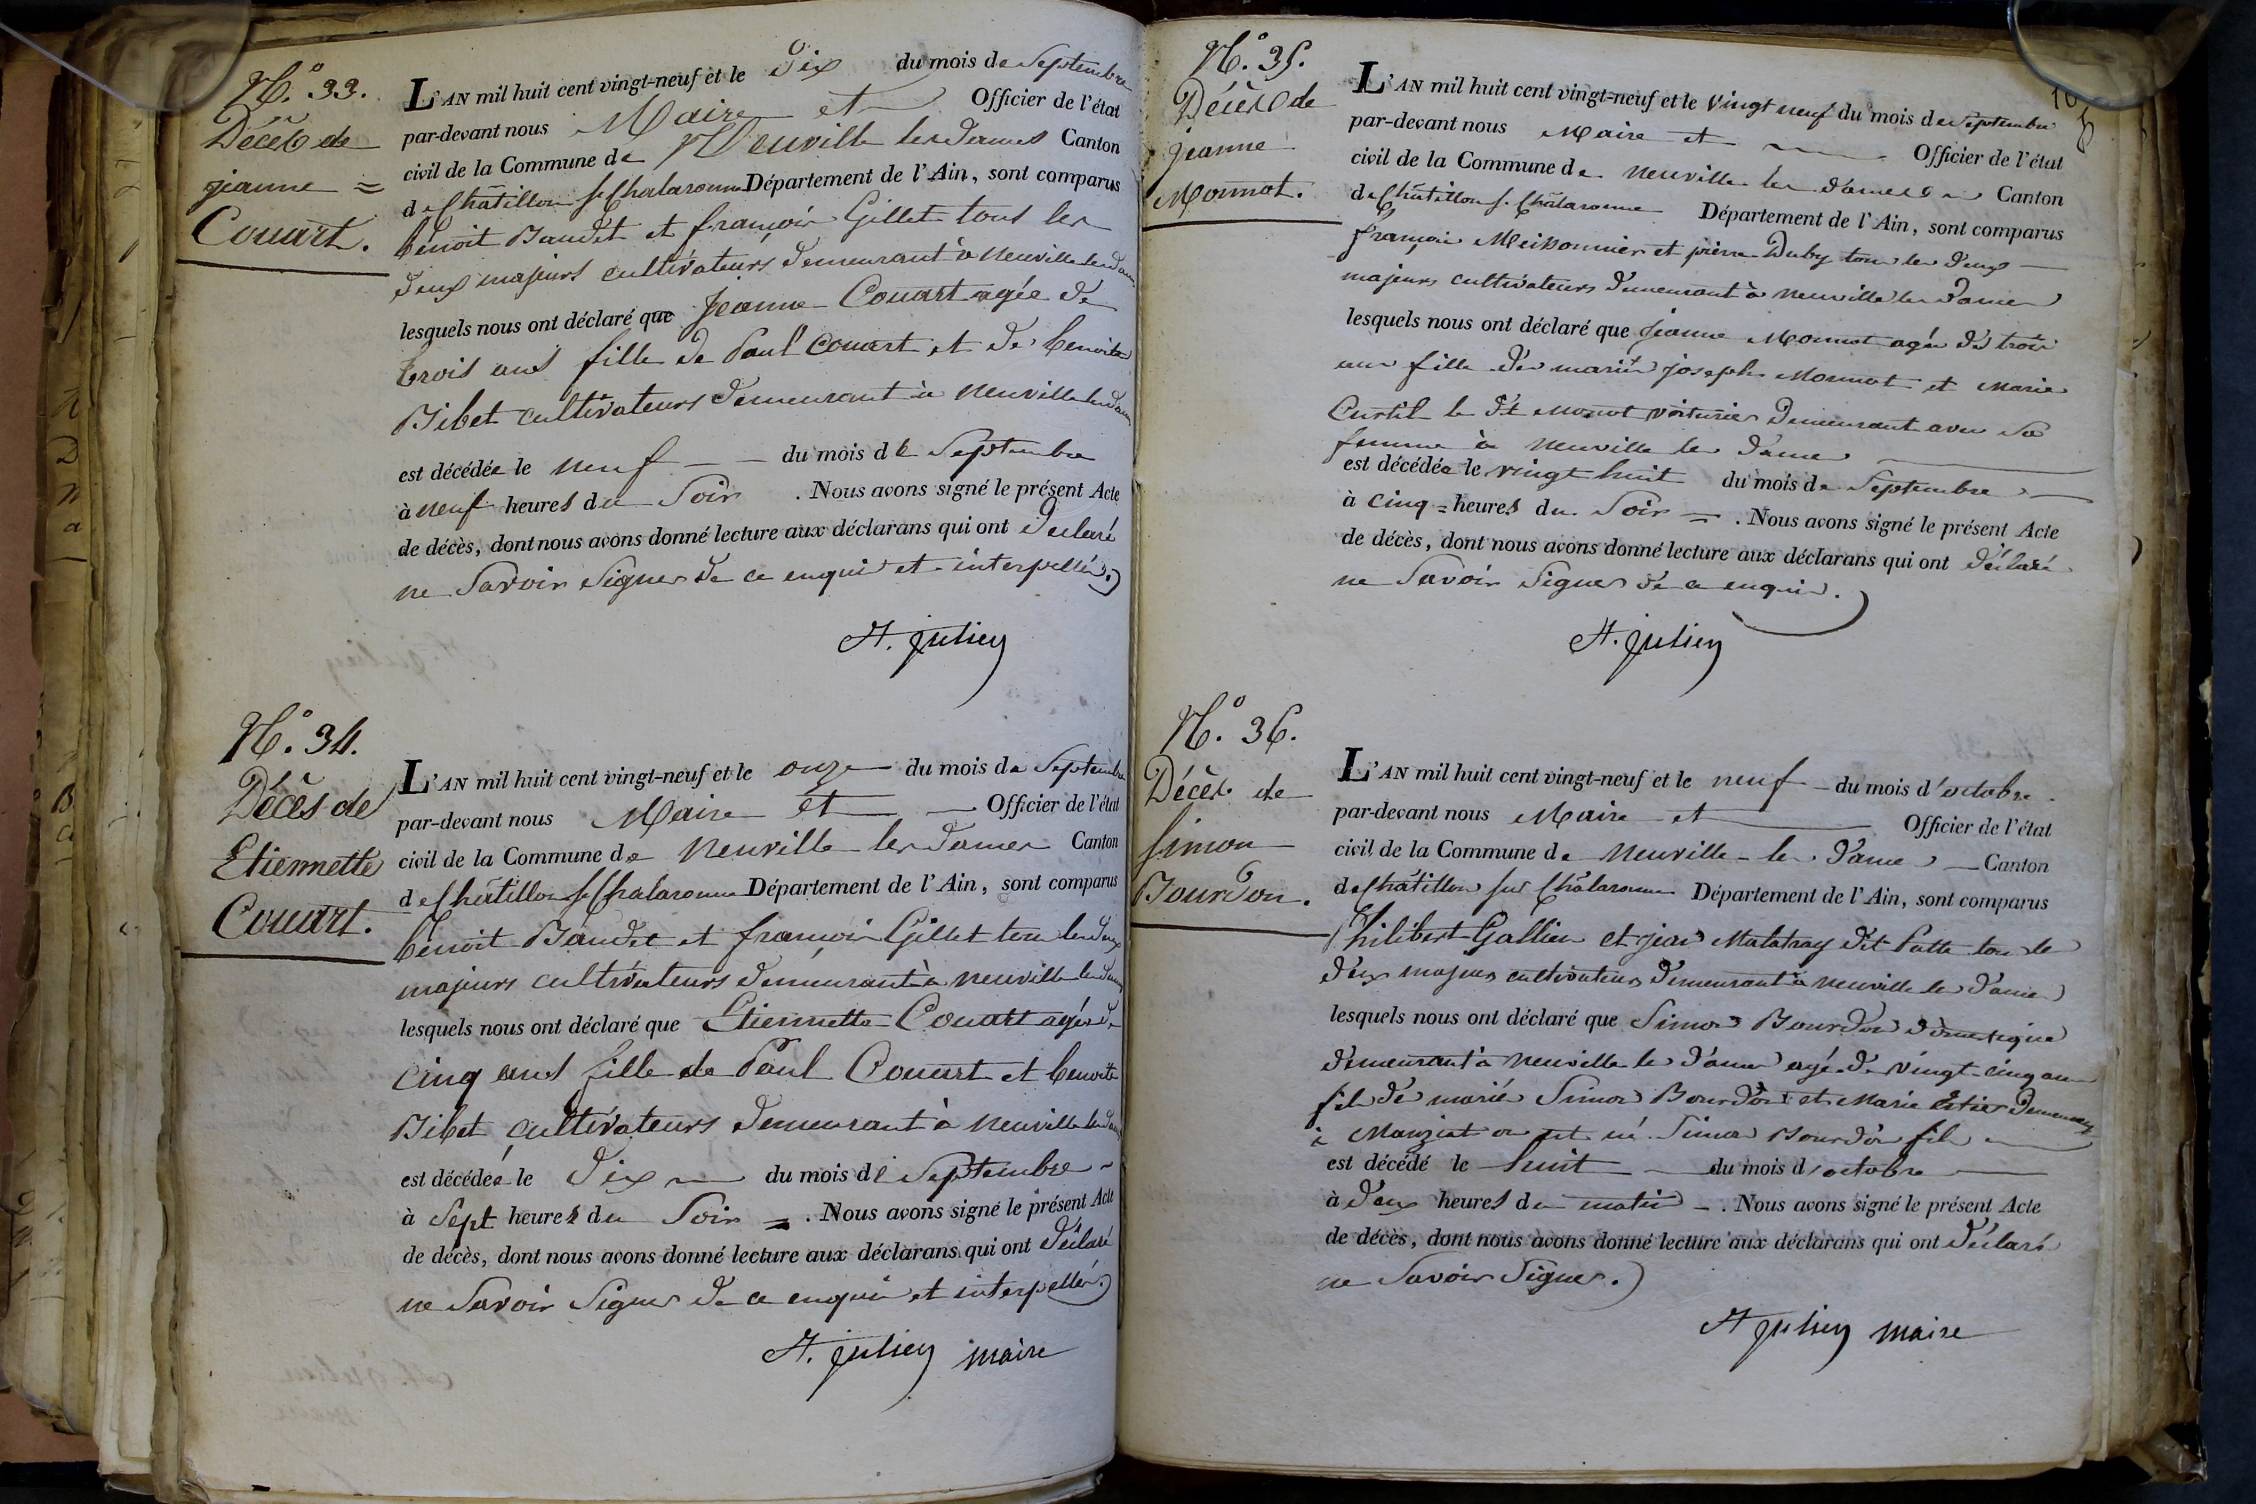 N.° 33.
Décès de
jeanne =
Couart.
L'AN mil huit cent vingt-neuf et le Dix du mois de Septembre
par-devant nous Maire et Officier de l'état
civil de la Commune de Neuville les dames Canton
de Châtillon s. Chalaronne Département de l'Ain, sont comparus
benoit Baudet et françois Gillet tous les
deux majeurs cultivateurs demeurant à neuville les dames
lesquels nous ont déclaré que Jeanne Couart agée de
trois ans fille de Paul Couart et de benoite
Bibet cultivateurs demeurant à neuville les dames
est décédée le neuf du mois de Septembre
à neuf heures du Soir . Nous avons signé le présent Acte
de décès, dont nous avons donné lecture aux déclarans qui ont déclaré
ne Savoir Signer de ce enquis et interpellés.
A. julien
N.° 34.
Décès de
Etiennette
Couart.
L'AN mil huit cent vingt-neuf et le onze du mois de Septembre
par-devant nous Maire et Officier de l'état
civil de la Commune de Neuville les dames Canton
de Châtillon s. Chalaronne Département de l'Ain, sont comparus
benoit Baudet et françois Gillet tous les deux
majeurs cultivateurs demeurant à neuville les dames
lesquels nous ont déclaré que Etiennette Couart agée de
cinq ans fille de Paul Couart et benoite
Bibet cultivateurs demeurant à neuville les dames
est décédée le Dix du mois de Septembre
à Sept heures du Soir = . Nous avons signé le présent Acte
de décès, dont nous avons donné lecture aux déclarans qui ont déclaré
ne Savoir Signer de ce enquis et interpellés.
A. julien maire
N.° 35.
Décès de
jeanne
Monnot.
L'AN mil huit cent vingt-neuf et le Vingt neuf du mois de Septembre
par-devant nous Maire et Officier de l'état
civil de la Commune de neuville les dames Canton
de Châtillon s. Châlaronne Département de l'Ain, sont comparus
françois Meissonnier et pierre Duby tous les deux
majeurs cultivateurs demeurant à neuville les dames
lesquels nous ont déclaré que Jeanne Monnot agée de trois
ans fille de mariés joseph Monnot et Marie
Curtil le dt Monot voiturier demeurant avec sa
femme à neuville les dames
est décédée le vingt huit du mois de Septembre
à cinq = heures du Soir = . Nous avons signé le présent Acte
de décès, dont nous avons donné lecture aux déclarans qui ont déclaré
ne Savoir Signer de ce enquis.
A. julien
N.° 36.
Décès de
Simon
Bourdon.
L'AN mil huit cent vingt-neuf et le neuf du mois d'octobre
par-devant nous Maire et Officier de l'état
civil de la Commune de neuville les dames Canton
de Châtillon sur Châlaronne Département de l'Ain, sont comparus
Philibert Gallien et jean Malatray dit Patte tous les
deux majeurs cultivateurs demeurant à neuville les dames
lesquels nous ont déclaré que Simon Bourdon domestique
demeurant à neuville les dames agé de vingt-cinq ans
fils de mariés Simon Bourdon et Marie demeurant
à Manziat où est né Simon Bourdon fils
est décédé le huit du mois d'octobre
à deux heures du matin . Nous avons signé le présent Acte
de décès, dont nous avons donné lecture aux déclarans qui ont déclaré
ne Savoir Signer.
A julien maire